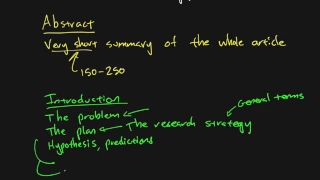 Abstract
Very short summary of the whole article
150-250
Introduction
General terms
The problem
The plan The research strategy
Hypothesis, predictions